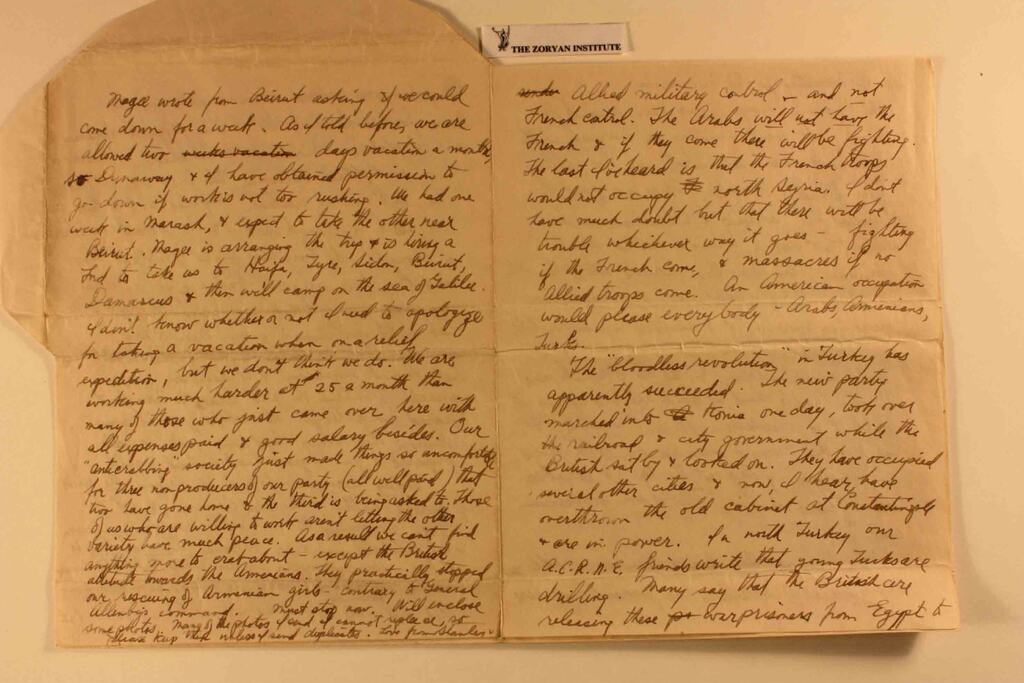 THE ZORYAN INSTITUTE
Magee wrote from Beirut asking if we could
come down for a week. As I told before, we are
allowed two weeks vacation days vacation a month,
so Dunaway & I have obtained permission to
go down if work is not too rushing. We had one
week in Marash, & expect to take the other near
Beirut. Magee is arranging the trip & is hiring a
Ford to take us to Haifa, Tyre, Sidon, Beirut,
Damascus & then will camp on the sea of Galilee.
I don't know whether or not I need to apologize
for taking a vacation when on a relief
expedition, but we don't think we do. We are
working much harder at 25 a month than
many of those who just came over here with
all expenses paid & good salary besides. Our
"anticrabbing" society just made things so uncomfortable
for three nonproducers of our party (all well paid) that
two have gone home & the third is being asked to. Those
of us who are willing to work aren't letting the other
variety have much peace. As a result we can't find
anything more to crab about - except the British
attitude towards the Armenians. They practically stopped
our rescuing of Armenian girls - contrary to General
Allenby's command. Must stop now. Will enclose
some photos. Many of the photos I send I cannot replace, so
please keep them unless I send duplicates. Love from Stanley.
under Allied military control - and not
French control. The Arabs will not have the
French & if they come there will be fighting.
The last I've heard is that the French troops
would not occupy north Syria. I don't
have much doubt but that there will be
trouble whichever way it goes - fighting
if the French come, & massacres if no
Allied troops come. An American occupation
would please everybody - Arabs, Armenians,
Turks.
The "bloodless revolution" in Turkey has
apparently succeeded. The new party
marched into Konia one day, took over
the railroad & city government while the
British sat by & looked on. They have occupied
several other cities & now, I hear, have
overthrown the old cabinet at Constantinople
& are in power. In north Turkey our
A.C.R.N.E. friends write that young Turks are
drilling. Many say that the British are
releasing these war prisoners from Egypt to